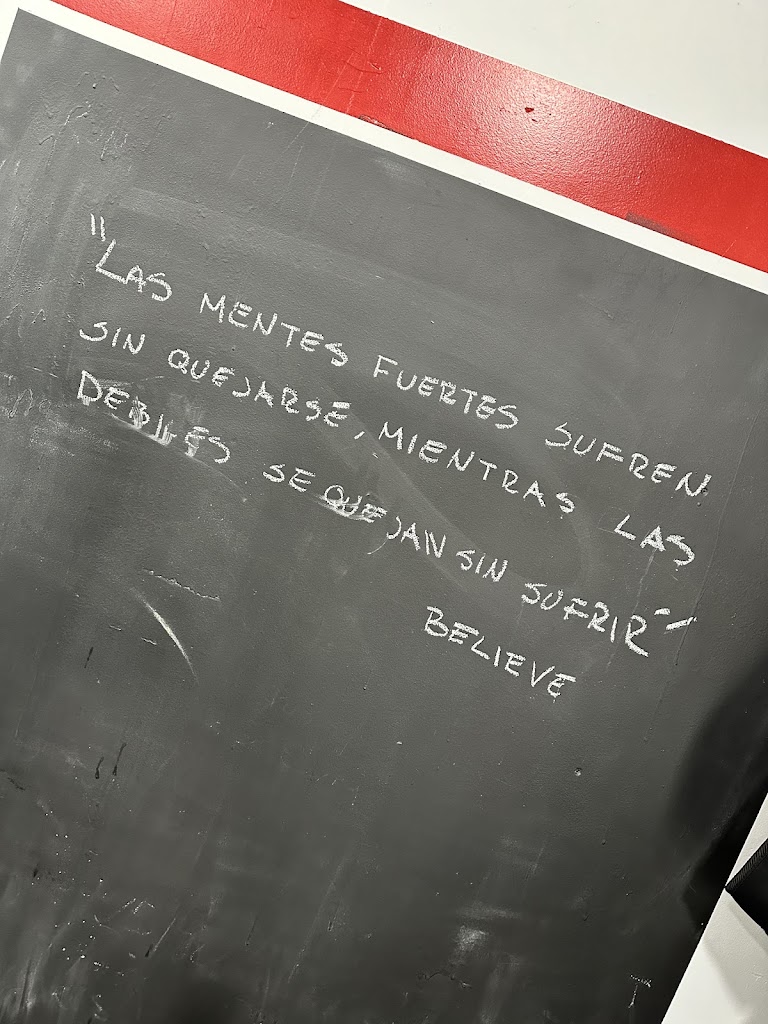 "LAS MENTES FUERTES SUFREN
SIN QUEJARSE, MIENTRAS LAS
DEBILES SE QUEJAN SIN SUFRIR"
BELIEVE